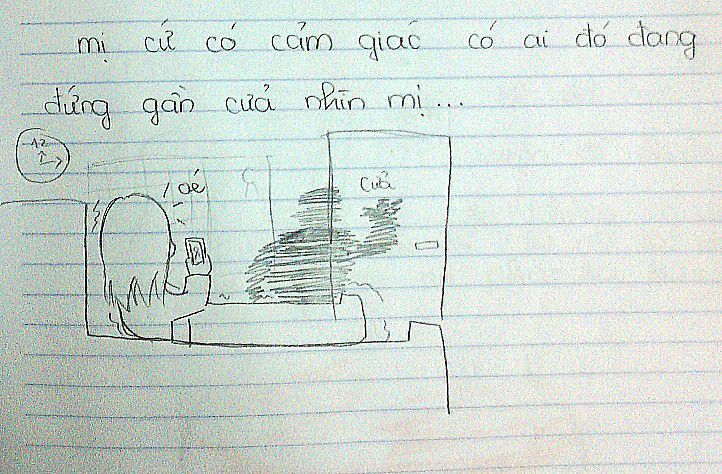 mị cứ có cảm giác có ai đó đang
đứng gần cưả nhìn mị...
12
oé
Cưả